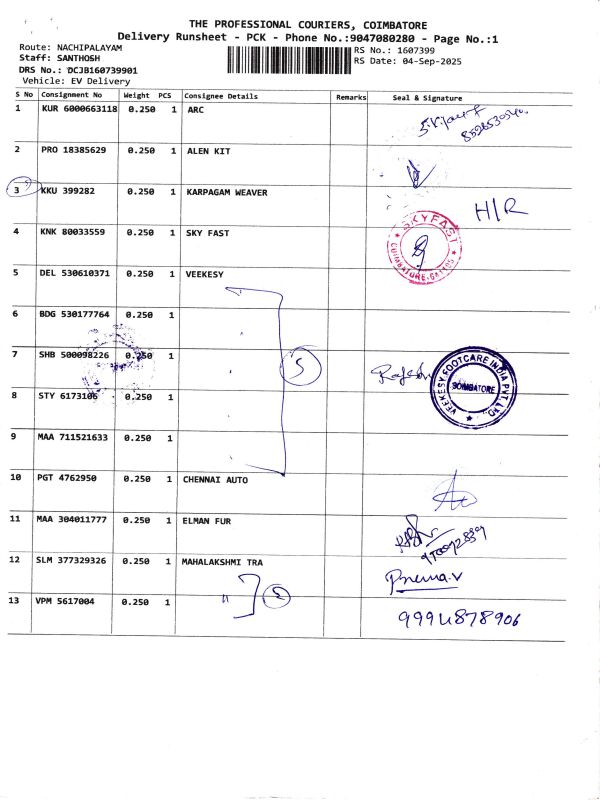 THE PROFESSIONAL COURIERS, COIMBATORE
Delivery Runsheet - PCK - Phone No.:9047080280 - Page No.:1
Route: NACHIPALAYAM
Staff: SANTHOSH
DRS No.: DCJB160739901
Vehicle: EV Delivery
RS No.: 1607399
RS Date: 04-Sep-2025
S No Consignment No Weight PCS Consignee Details Remarks Seal & Signature
1 KUR 6000663118 0.250 1 ARC
2 PRO 18385629 0.250 1 ALEN KIT
3 KKU 399282 0.250 1 KARPAGAM WEAVER H/R
4 KNK 80033559 0.250 1 SKY FAST
SKYFAST
5 DEL 530610371 0.250 1 VEEKESY
6 BDG 530177764 0.250 1
7 SHB 500098226 0.250 1 5
VEEKESY FOOTCARE INDIA PVT. LTD
COIMBATORE
8 STY 6173106 0.250 1
9 MAA 711521633 0.250 1
10 PGT 4762950 0.250 1 CHENNAI AUTO
11 MAA 304011777 0.250 1 ELMAN FUR
12 SLM 377329326 0.250 1 MAHALAKSHMI TRA
Prema.V
13 VPM 5617004 0.250 1 " 2
9994878906